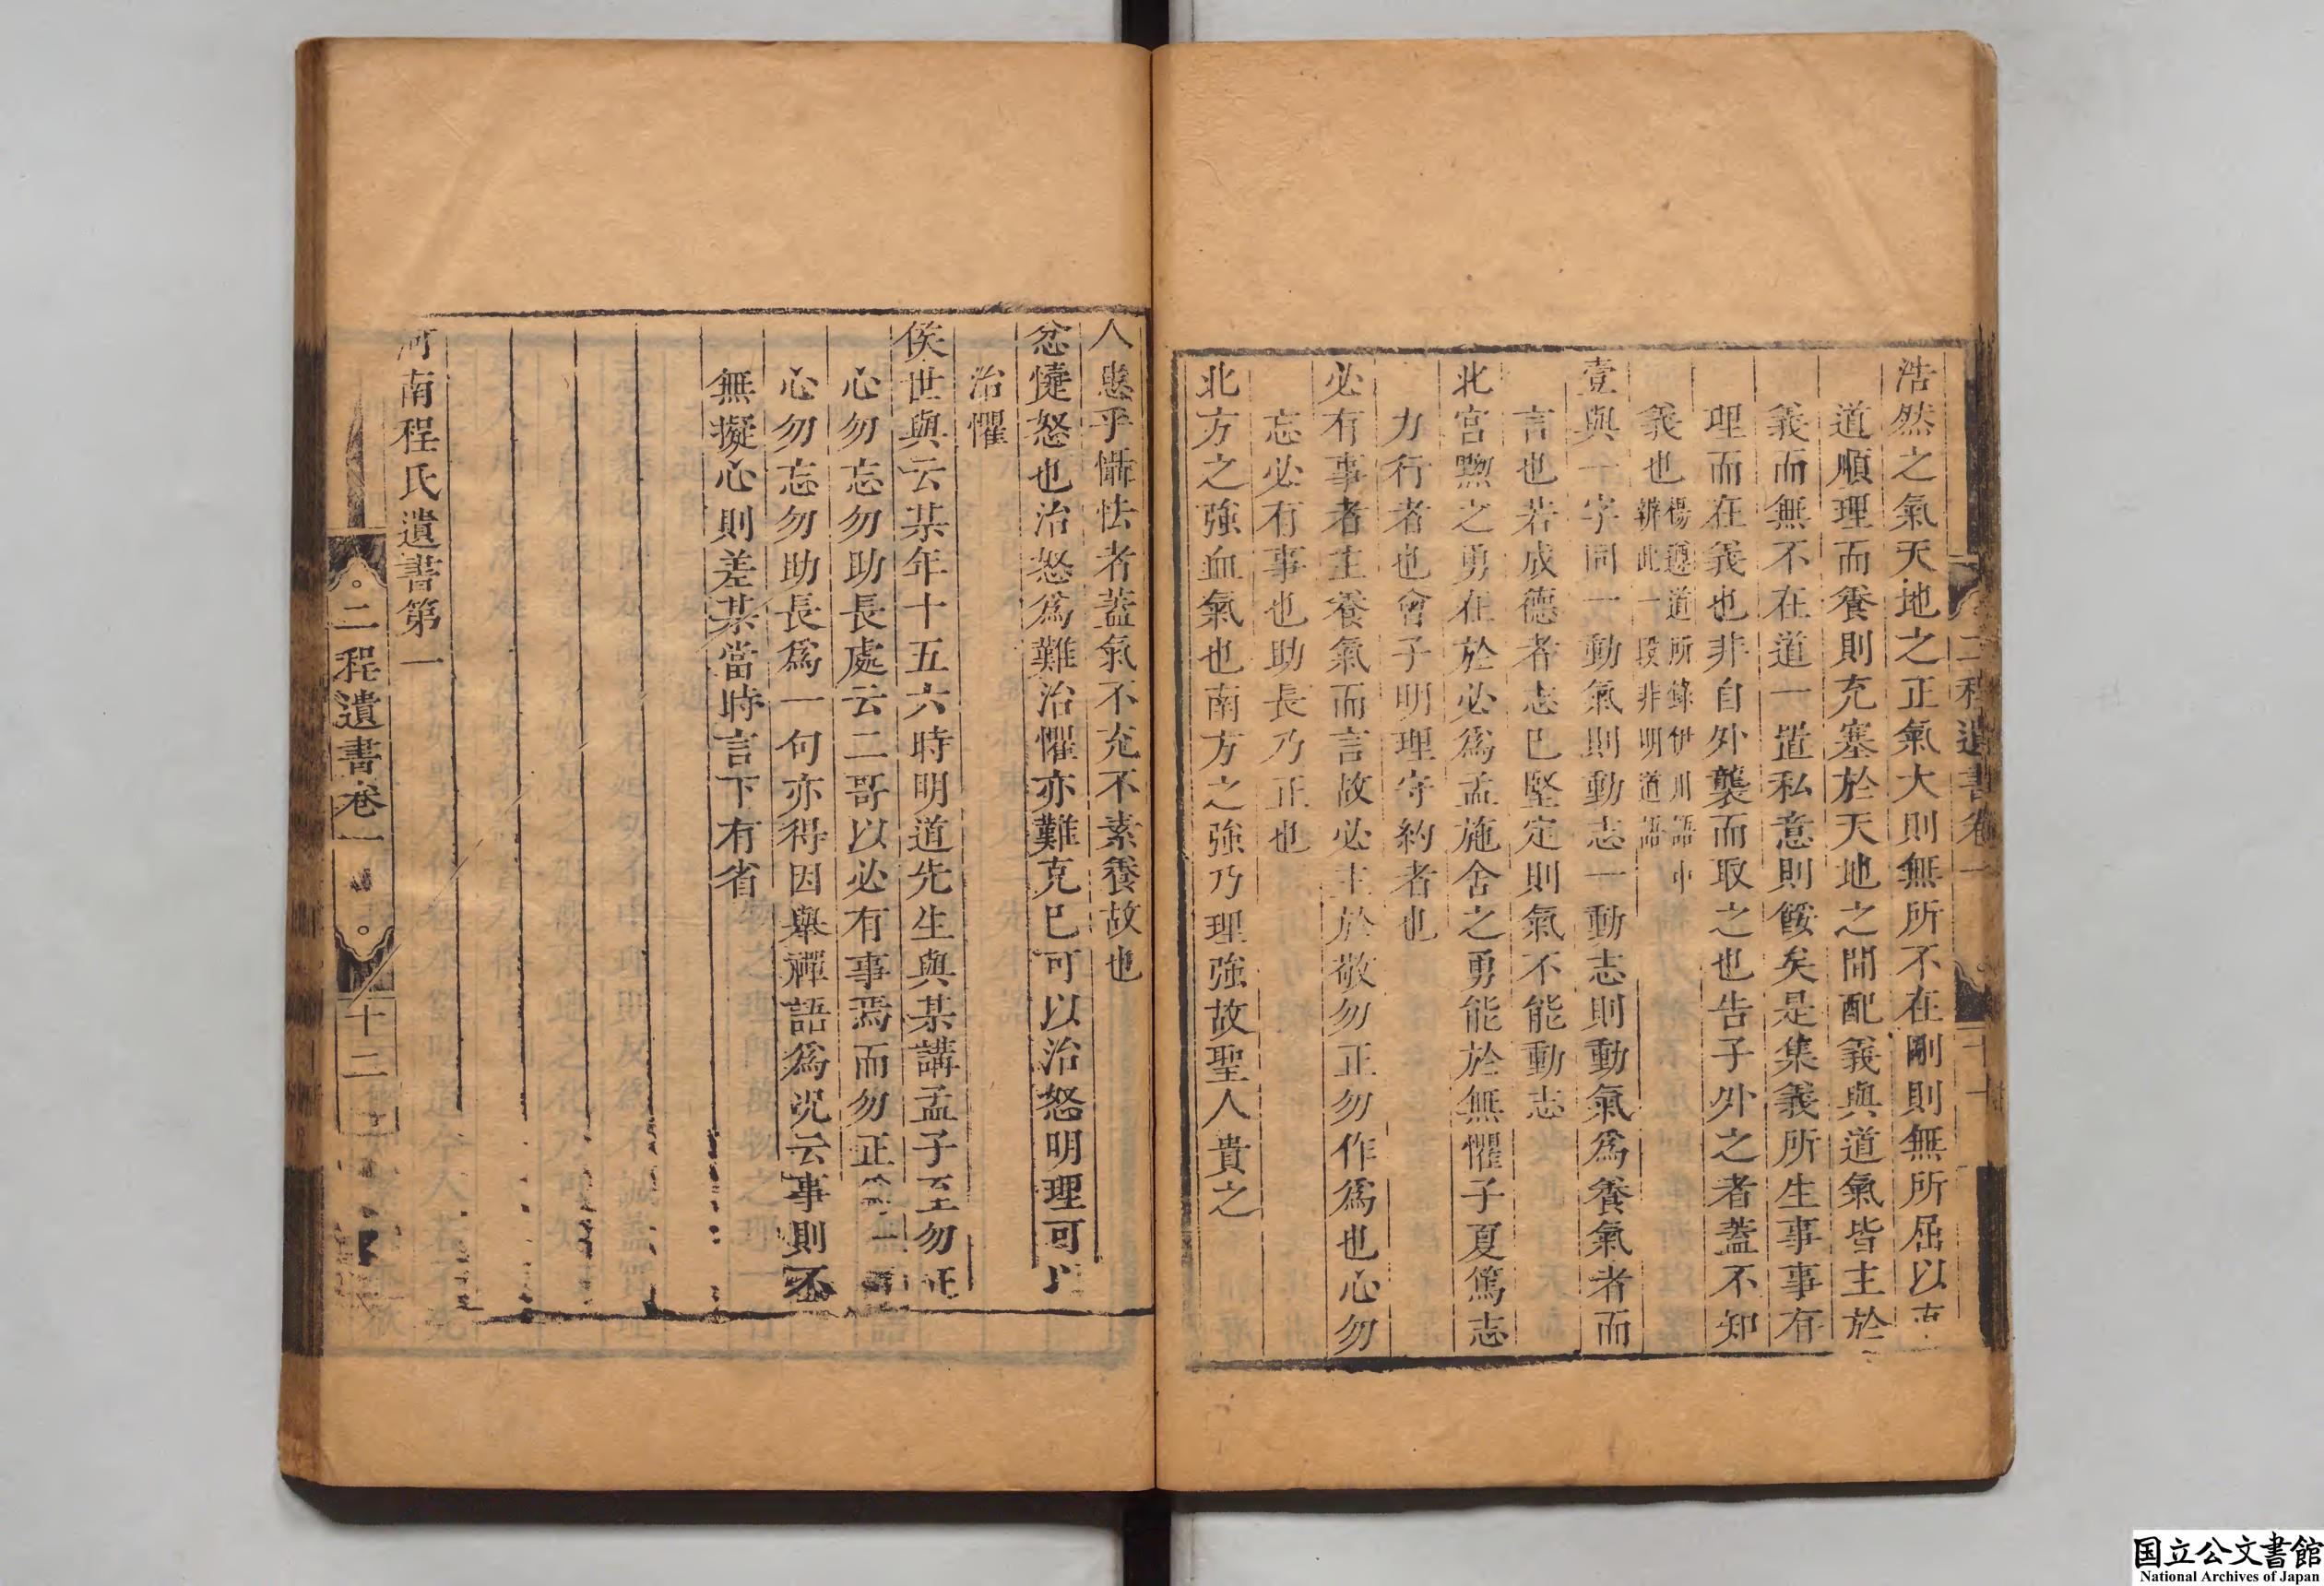 浩然之氣天地之正氣大則無所不在剛則無所屈以直
道順理而養則充塞於天地之間配義與道氣皆主於
義而無不在道一置私意則餒矣是集義所生事事有
理而在義也非自外襲而取之也告子外之者蓋不知
義也楊遵道所錄伊川語中
辨此一段非明道語
壹與一字同一動氣則動志一動志則動氣爲養氣者而
言也若成德者志已堅定則氣不能動志
北宮黝之勇在於必爲孟施舍之勇能於無懼子夏篤志
力行者也曾子明理守約者也
必有事者主養氣而言故必主於敬勿正勿作爲也心勿
忘必有事也助長乃正也
北方之強血氣也南方之強乃理強故聖人貴之
二程遺書卷一
人患乎懾怯者蓋氣不充不素養故也
忿懥怒也治怒爲難治懼亦難克己可以治怒明理可以
治懼
侯世與云某年十五六時明道先生與某講孟子至勿正
心勿忘勿助長處云二哥以必有事焉而勿正
心勿忘勿助長爲一句亦得因舉禪語爲况云事則不
無擬心則差某當時言下有省
河南程氏遺書第一
二程遺書卷一
十二
国立公文書館
National Archives of Japan